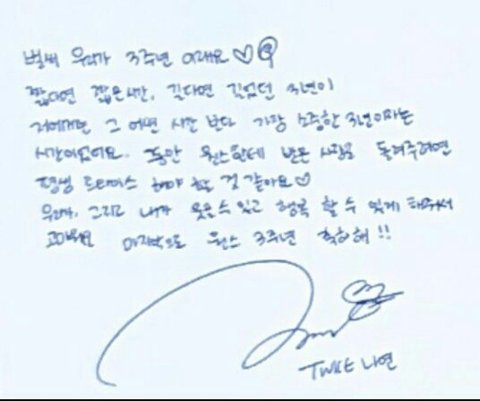 벌써 우리가 3주년 이래요♡
짧다면 짧은시간, 길다면 길었던 3년이
저에게는 그 어떤 시간 보다 가장 소중한 3년이라는
시간이었어요. 그동안 원스한테 받은 사랑을 돌려주려면
평생 트와이스 해야 할 것 같아요♡
우리가, 그리고 내가 웃을수 있고 행복 할 수 있게 해주어서
고마워요 마지막으로 원스 3주년 축하해!!
TWICE 나연